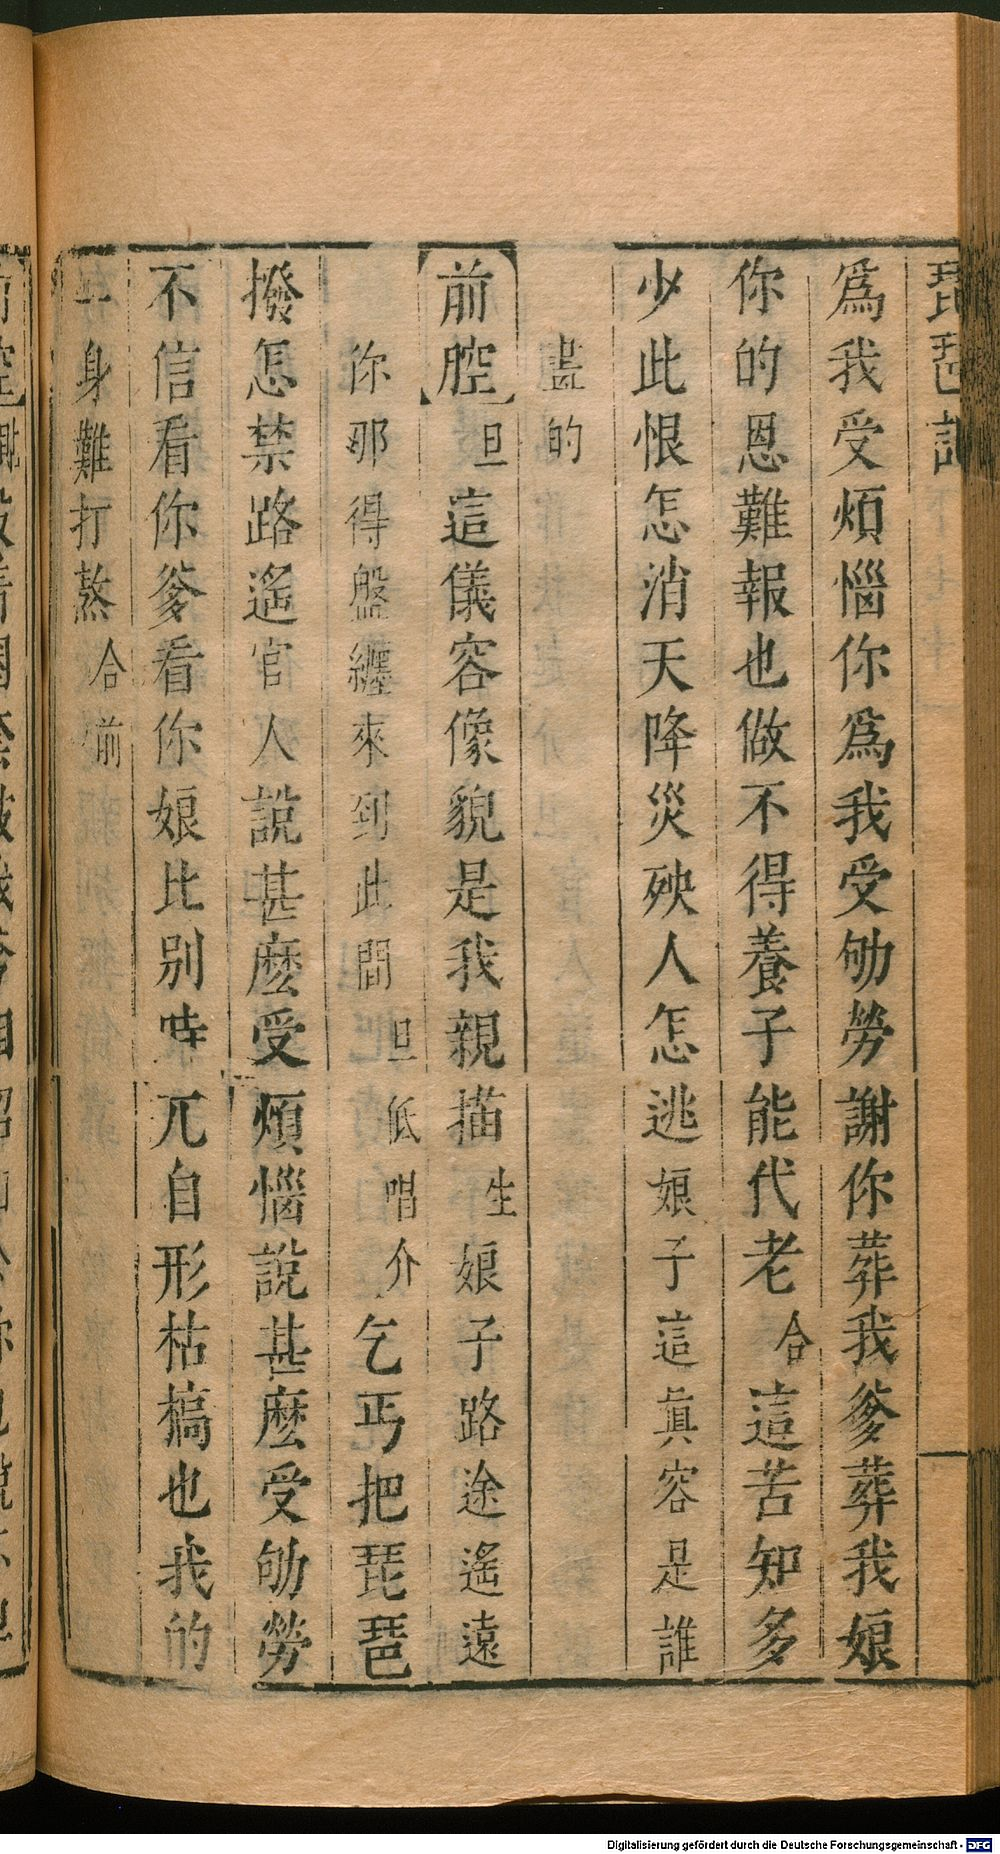 琵琶記
爲我受煩惱你爲我受劬勞謝你葬我爹葬我娘
你的恩難報也做不得養子能代老合這苦知多
少此恨怎消天降災殃人怎逃娘子這眞容是誰
畫的
前腔旦這儀容像貌是我親描生娘子路途遙遠
你那得盤纏來到此間旦低唱介乞丐把琵琶
撥怎禁路遙官人說甚麽受煩惱說甚麽受劬勞
不信看你爹看你娘比别時兀自形枯槁也我的
一身難打熬合前
Digitalisierung gefördert durch die Deutsche Forschungsgemeinschaft - DFG